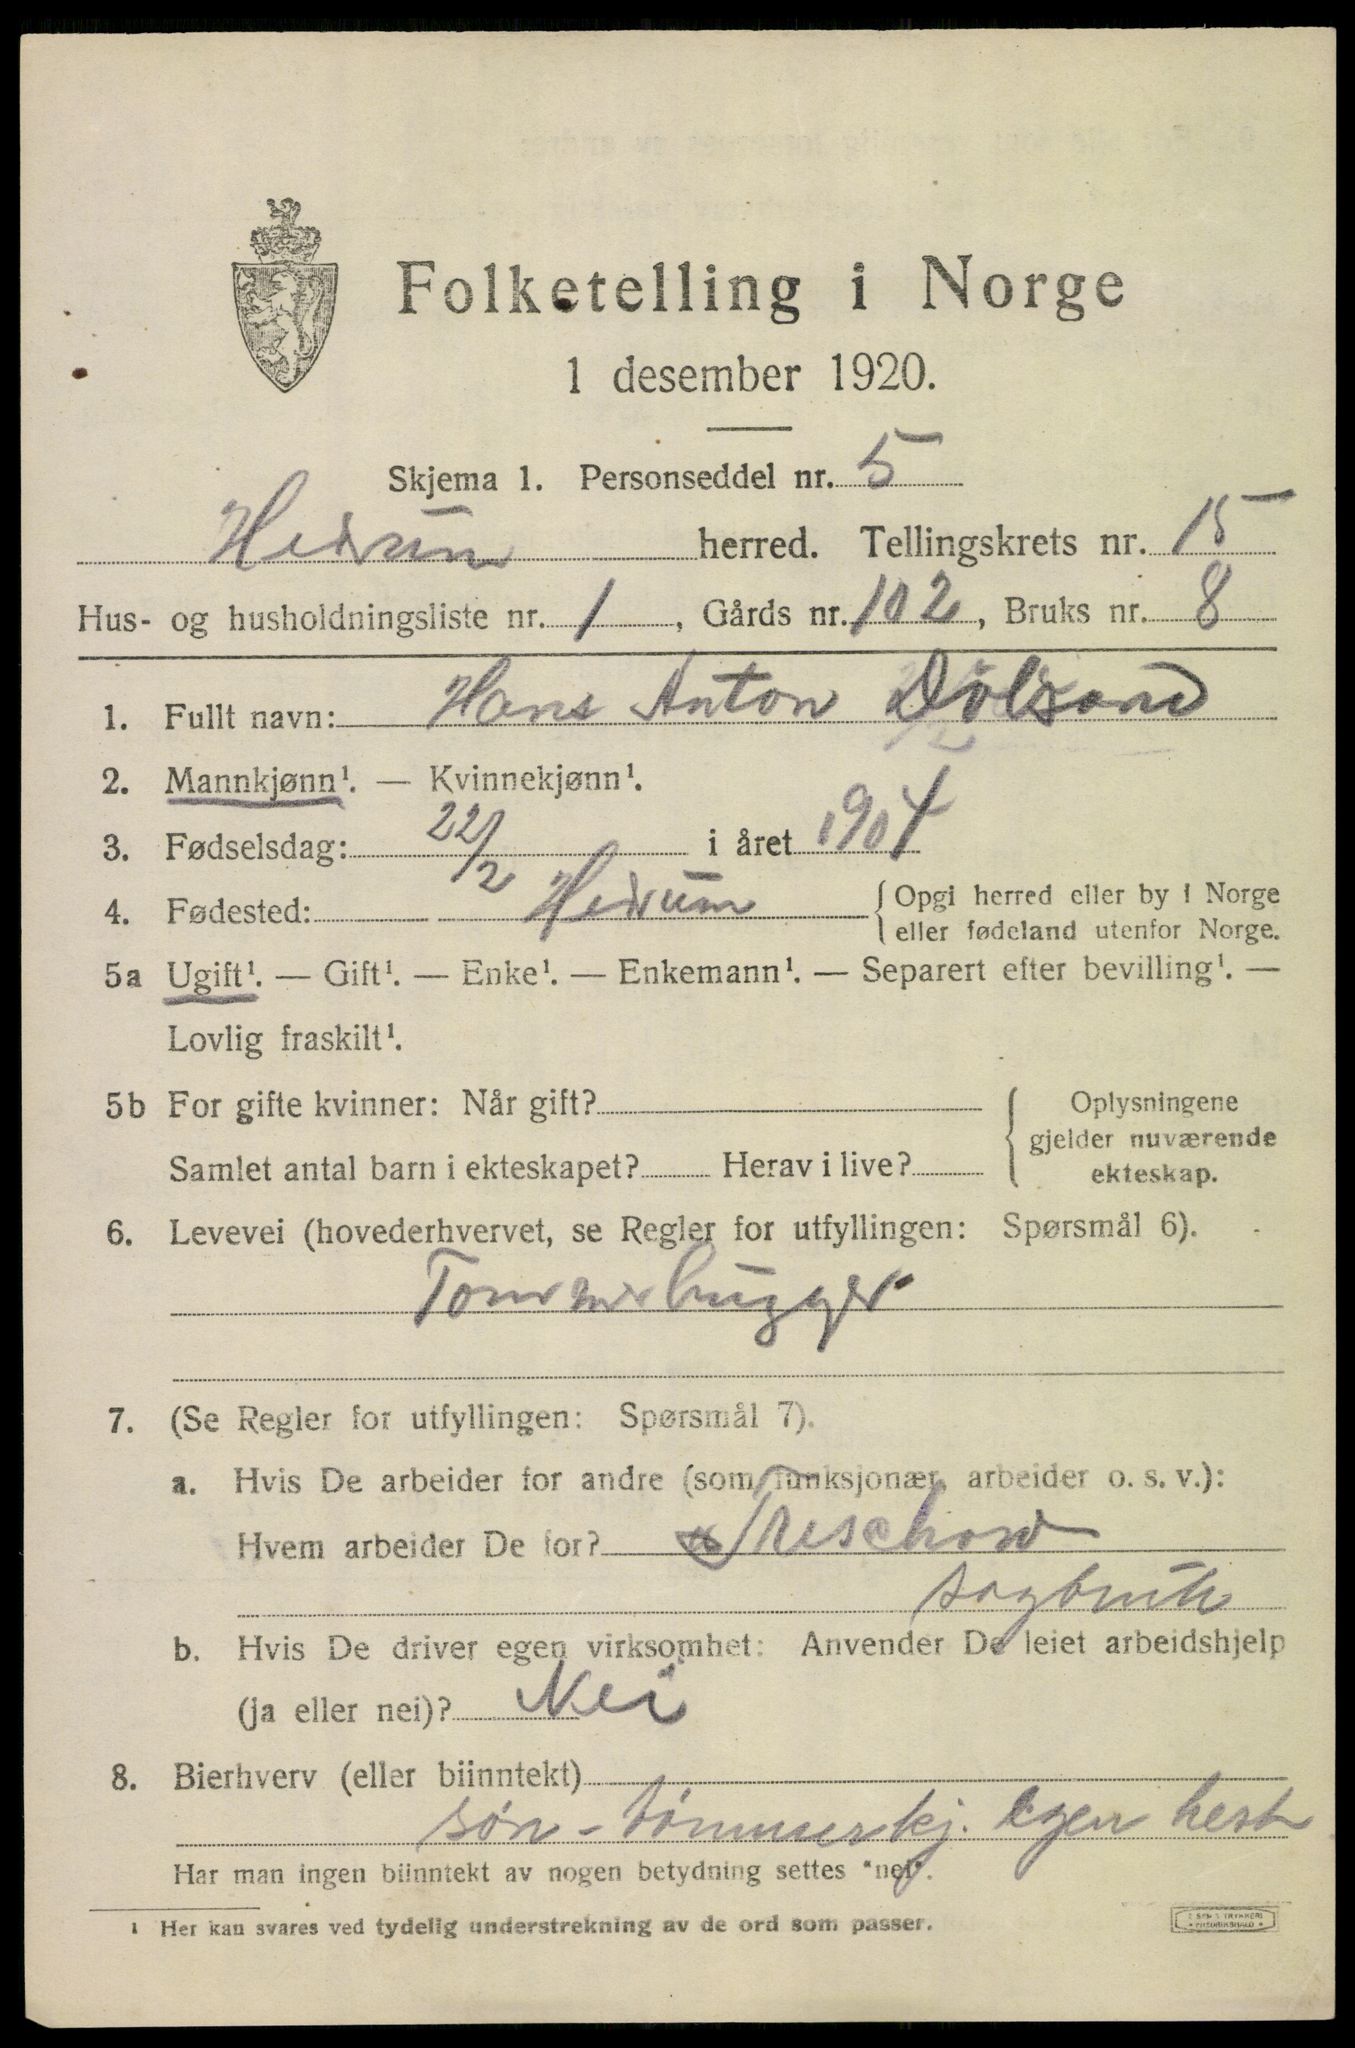 Folketelling i Norge
1 desember 1920.
Skjema 1. Personseddel nr. 5
Hedrum herred. Tellingskrets nr. 15
Hus- og husholdningsliste nr. 1, Gårds nr. 102, Bruks nr. 8
1. Fullt navn: Hans Anton
2. Mannkjønn¹. — Kvinnekjønn¹.
3. Fødselsdag: 22/2 i året 1904
4. Fødested: Hedrum {Opgi herred eller by i Norge
eller fødeland utenfor Norge.
5a Ugift¹. — Gift¹. — Enke¹. — Enkemann¹. — Separert efter bevilling¹. —
Lovlig fraskilt¹.
5b For gifte kvinner: Når gift? {Oplysningene
gjelder nuværende
Samlet antal barn i ekteskapet? Herav i live?
ekteskap.
6. Levevei (hovederhvervet, se Regler for utfyllingen: Spørsmål 6).
Tommerhugger
7. (Se Regler for utfyllingen: Spørsmål 7).
a. Hvis De arbeider for andre (som funksjonær, arbeider o. s. v.):
Hvem arbeider De for? Treschow
sagbruk
b. Hvis De driver egen virksomhet: Anvender De leiet arbeidshjelp
(ja eller nei)? Nei
8. Bierhverv (eller biinntekt)
søn - tømmerkj. Egen hest
Har man ingen biinntekt av nogen betydning settes "nei".
¹ Her kan svares ved tydelig understrekning av de ord som passer.